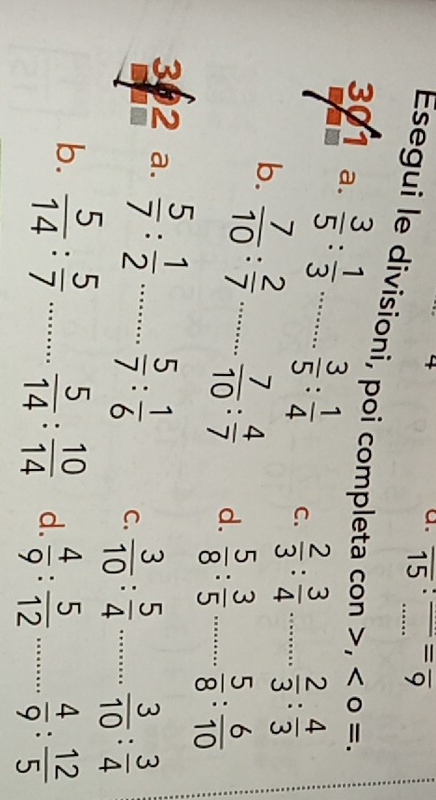 d. —/15 : —/..... = —/9
Esegui le divisioni, poi completa con >, < o =.
301 a. 3/5 : 1/3 .......... 3/5 : 1/4 c. 2/3 : 3/4 .......... 2/3 : 4/3
b. 7/10 : 2/7 .......... 7/10 : 4/7 d. 5/8 : 3/5 .......... 5/8 : 6/10
302 a. 5/7 : 1/2 .......... 5/7 : 1/6 c. 3/10 : 5/4 .......... 3/10 : 3/4
b. 5/14 : 5/7 .......... 5/14 : 10/14 d. 4/9 : 5/12 .......... 4/9 : 12/5